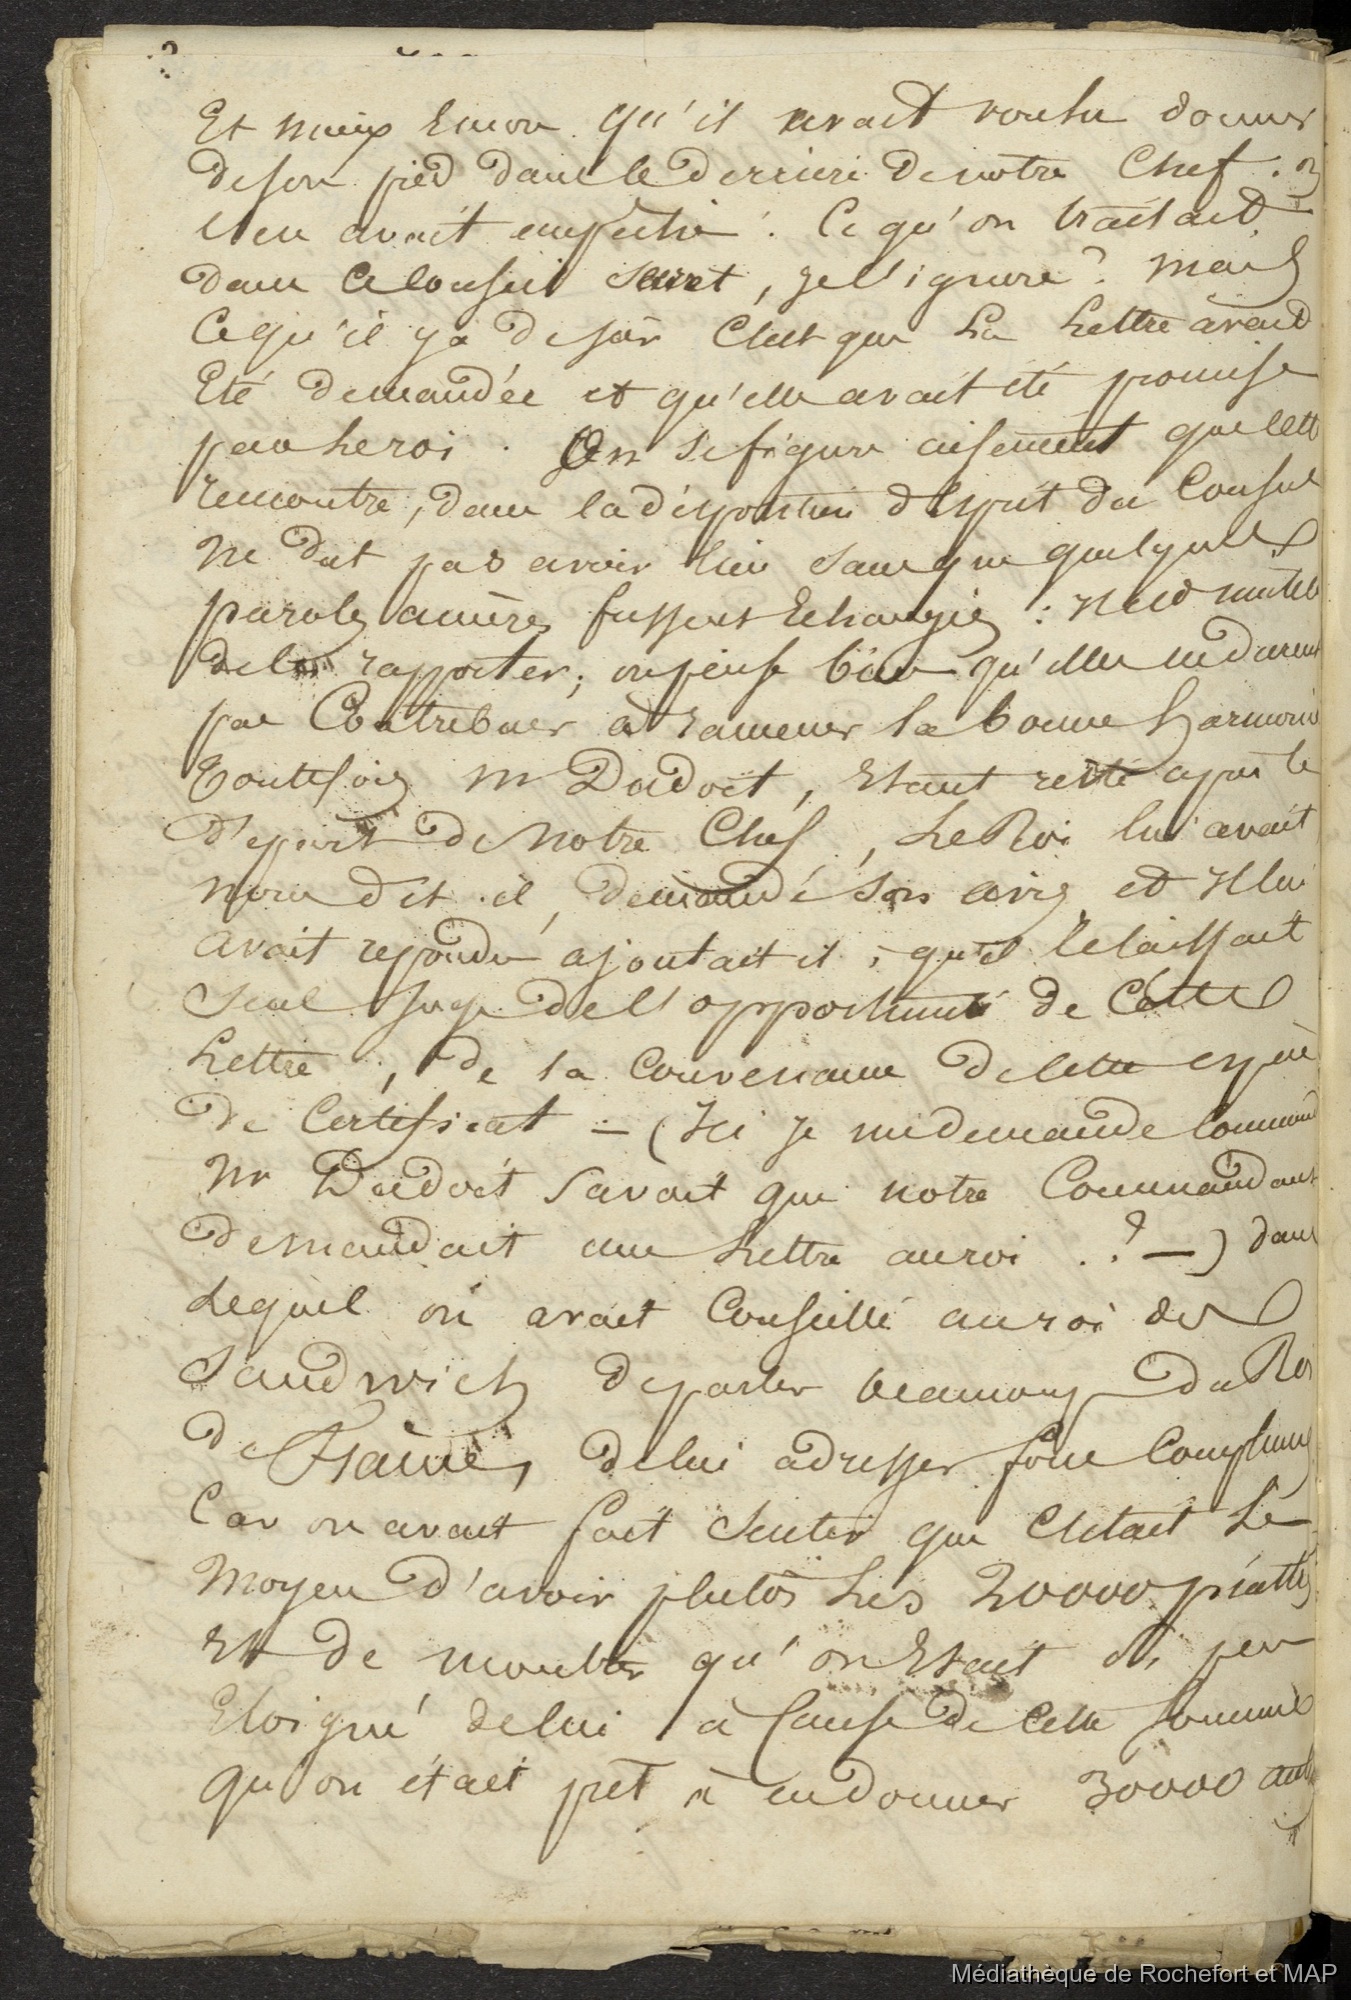 Et mieux Encore qu'il avait voulu donner
de son pied dans le derriere de notre Chef.
il en avait empeché. Ce qu'on traitait
dans ce Conseil secret, je l'ignore? mais
Ce qu'il y a de sûr C'est que La Lettre avait
Eté demandée et qu'elle avait été promise
par le roi. On se figure aisement que cette
rencontre, dans la disposition d'esprit du Consul
Ne dut pas avoir lieu sans que quelques
paroles amères fussent Echangées: Il est inutile
de les rapporter; on pense bien qu'elles ne durent
pas Contribuer à ramener la bonne harmonie
Toutefois Mr Dudoit, Etant resté après le
Départ de Notre Chef, Le Roi lui avait
nous dit-il, demandé son avis et Il lui
avait repondu ajoutait il, qu'il le laissait
Seul juge de l'opportunité de Cette
Lettre, de la Convenance de cette espèce
de Certificat – (Ici je me demande Comment
Mr Dudoit Savait que notre Commandant
demandait une Lettre au roi.? –) dans
Lequel on avait Conseillé au roi des
Sandwich de parler beaucoup du Roi
de France, de lui adresser force Compliments
Car on avait fait Sentir que C'était Le
Moyen d'avoir plutôt Les 20000 piastres
Et de montrer qu'on Etait si peu
Eloigné de lui à Cause de Cette Somme
qu'on était prêt à en donner 30000 autres
Médiathèque de Rochefort et MAP